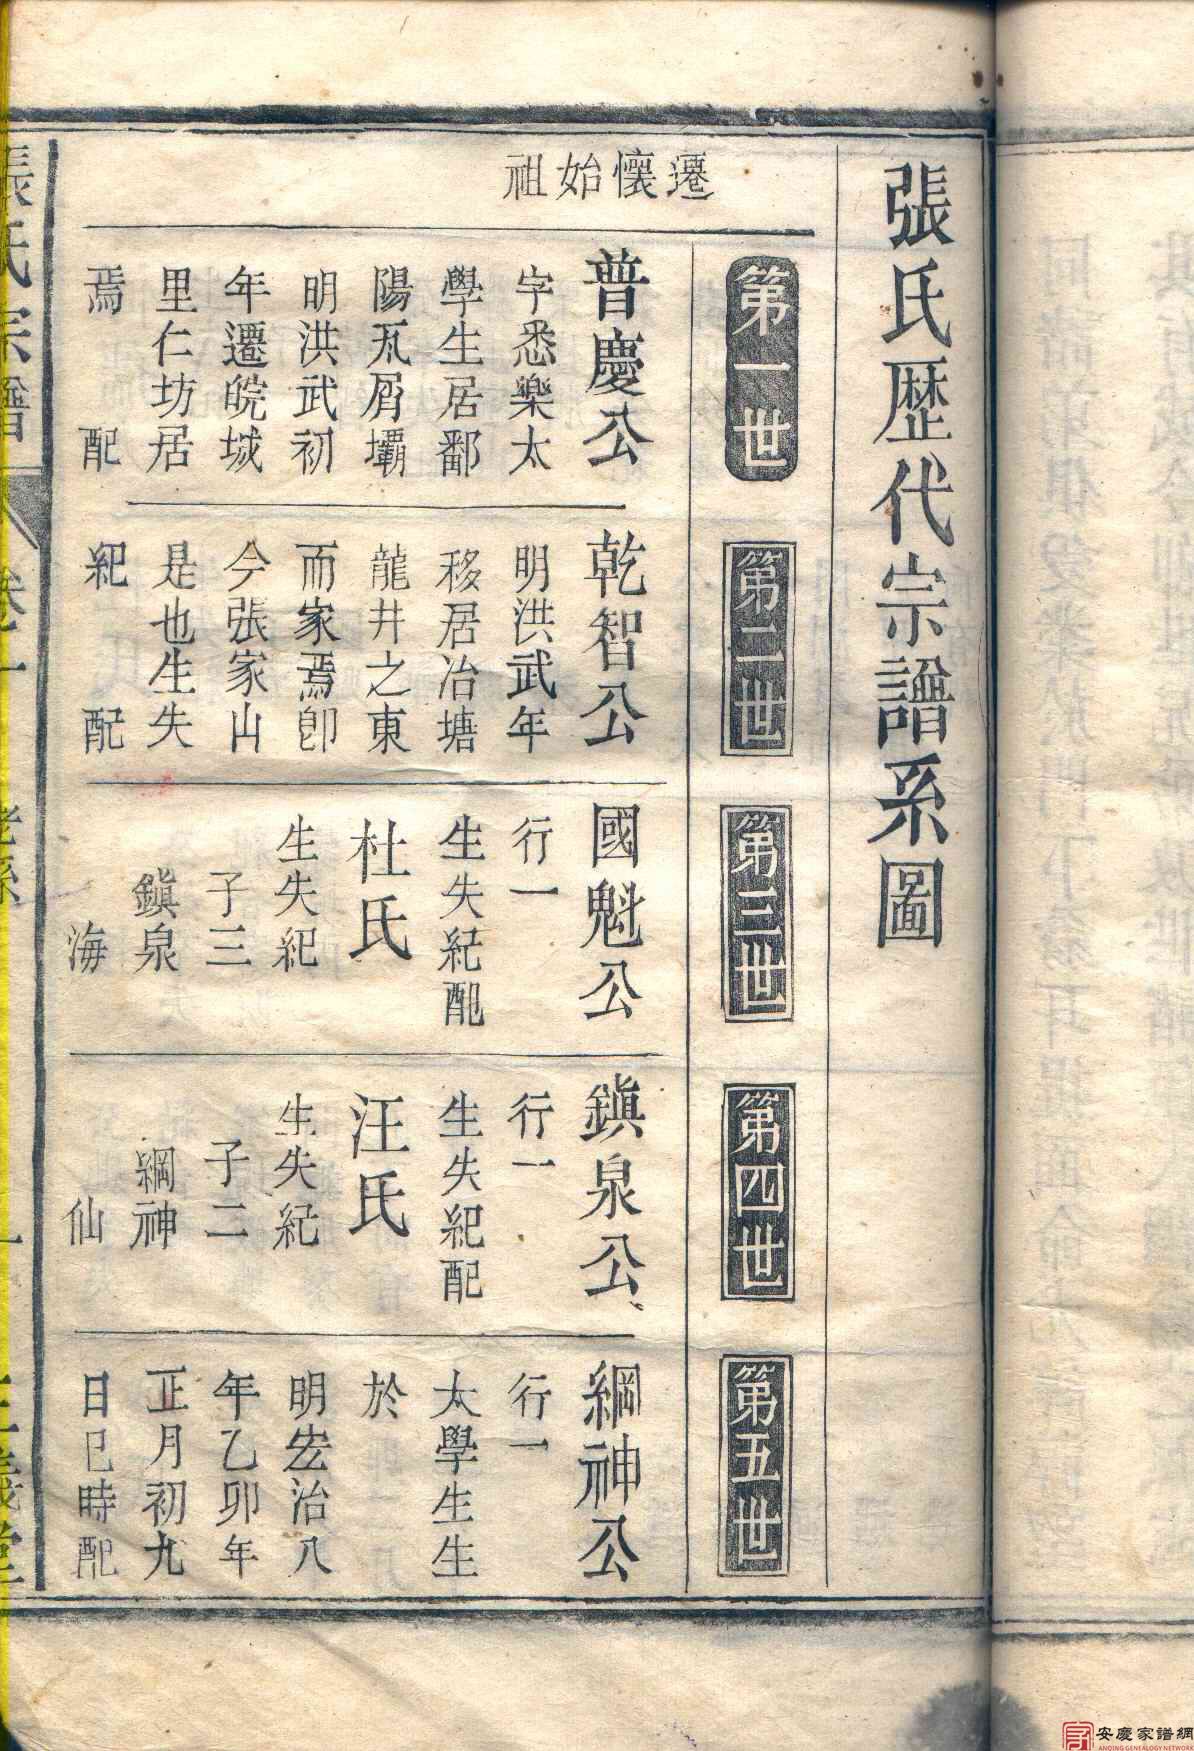 張氏歷代宗譜系圖
遷懷始祖
第一世
普慶公
字悉樂太
學生居鄱
陽瓦屑壩
明洪武初
年遷皖城
里仁坊居
焉 配
第二世
乾智公
明洪武年
移居冶塘
龍井之東
而家焉卽
今張家山
是也生失
紀 配
第三世
國魁公
行一
生失紀配
杜氏
生失紀
子三
鎮泉
海
第四世
鎮泉公
行一
生失紀配
汪氏
生失紀
子二
綱神
仙
第五世
綱神公
行一
太學生生
於
明宏治八
年乙卯年
正月初九
日巳時配
張氏宗譜
安慶家譜網
ANQING GENEALOGY NETWORK